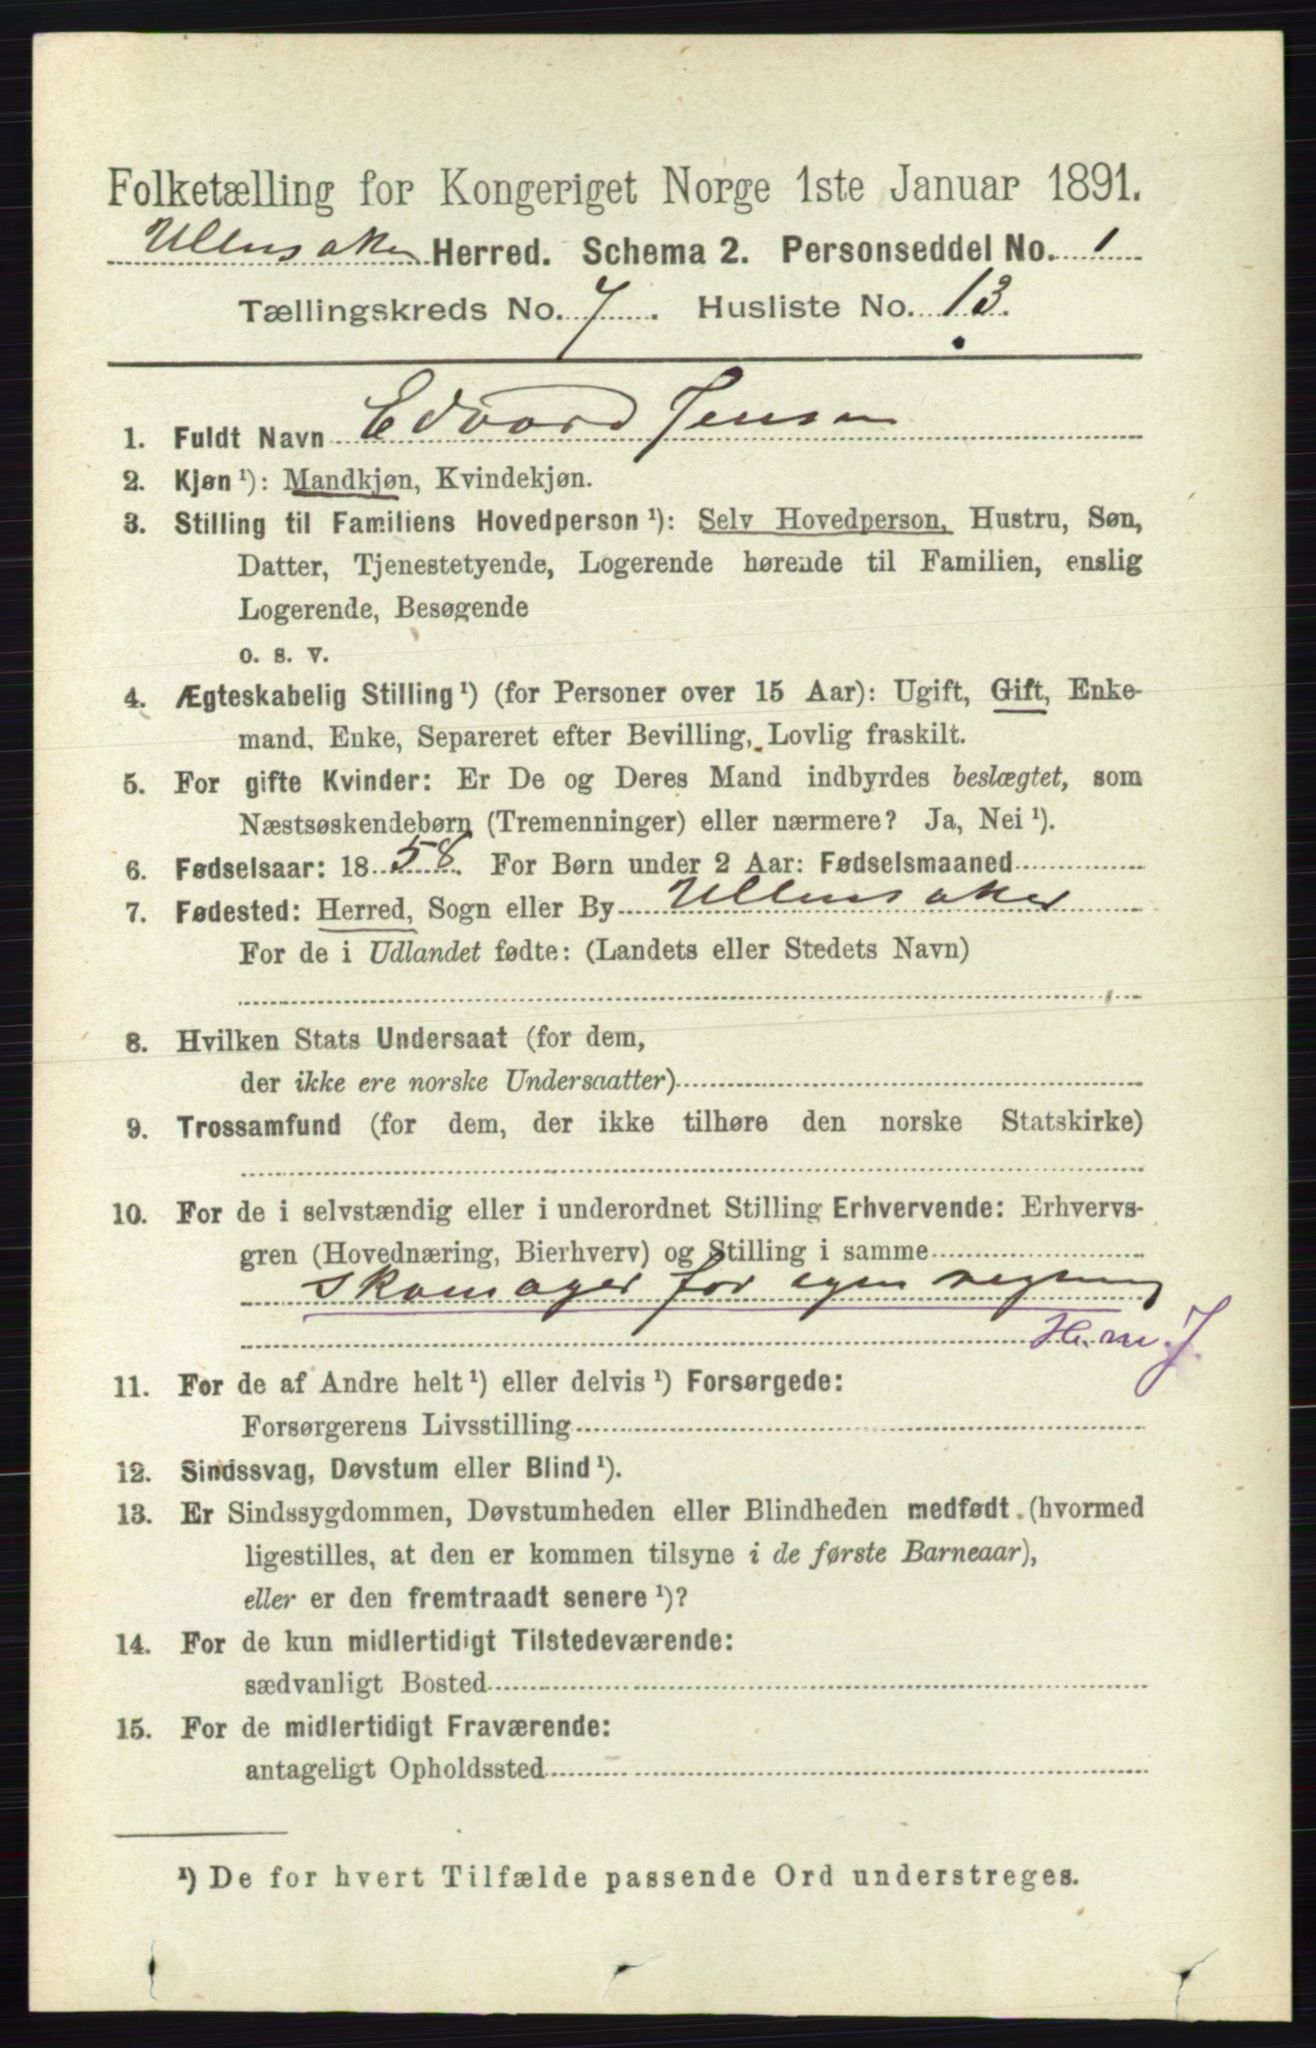 Folketælling for Kongeriget Norge 1ste Januar 1891.
Ullensaker Herred. Schema 2. Personseddel No. 1
Tællingskreds No. 7. Husliste No. 13.
1. Fuldt Navn Edvard Jensen
2. Kjøn ¹): Mandkjøn, Kvindekjøn.
3. Stilling til Familiens Hovedperson ¹): Selv Hovedperson, Hustru, Søn,
Datter, Tjenestetyende, Logerende hørende til Familien, enslig
Logerende, Besøgende
o. s. v.
4. Ægteskabelig Stilling ¹) (for Personer over 15 Aar): Ugift, Gift, Enke-
mand, Enke, Separeret efter Bevilling, Lovlig fraskilt.
5. For gifte Kvinder: Er De og Deres Mand indbyrdes beslægtet, som
Næstsøskendebørn (Tremenninger) eller nærmere? Ja, Nei ¹).
6. Fødselsaar: 1858. For Børn under 2 Aar: Fødselsmaaned
7. Fødested: Herred, Sogn eller By Ullensaker
For de i Udlandet fødte: (Landets eller Stedets Navn)
8. Hvilken Stats Undersaat (for dem,
der ikke ere norske Undersaatter)
9. Trossamfund (for dem, der ikke tilhøre den norske Statskirke)
10. For de i selvstændig eller i underordnet Stilling Erhvervende: Erhvervs-
gren (Hovednæring, Bierhverv) og Stilling i samme
Skomager for egen regning
H. m. J.
11. For de af Andre helt ¹) eller delvis ¹) Forsørgede:
Forsørgerens Livsstilling
12. Sindssvag, Døvstum eller Blind ¹).
13. Er Sindssygdommen, Døvstumheden eller Blindheden medfødt (hvormed
ligestilles, at den er kommen tilsyne i de første Barneaar),
eller er den fremtraadt senere ¹)?
14. For de kun midlertidigt Tilstedeværende:
sædvanligt Bosted
15. For de midlertidigt Fraværende:
antageligt Opholdssted
¹) De for hvert Tilfælde passende Ord understreges.